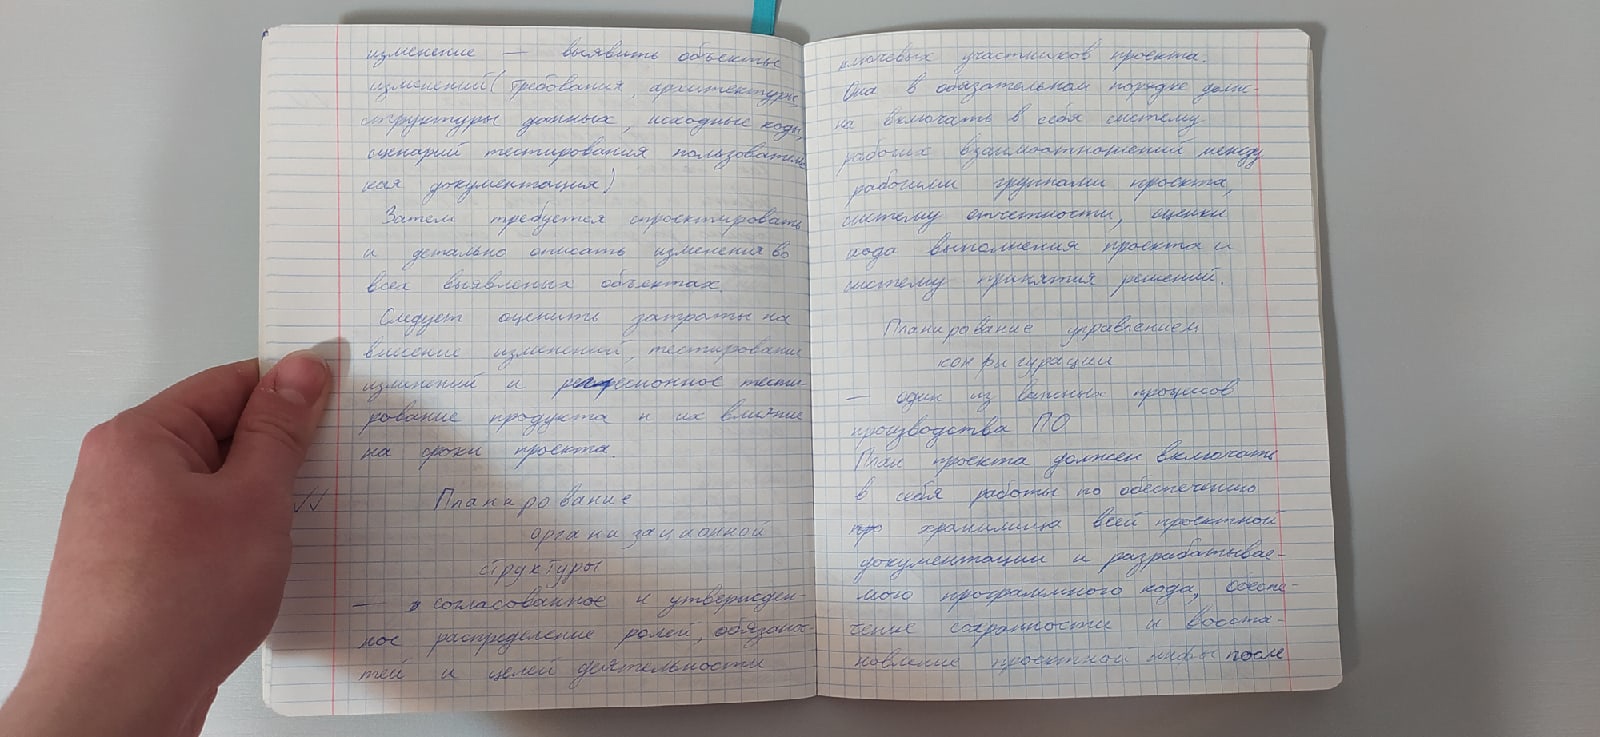 изменение — выявить объекты
изменений (требования, архитектуры
структуры данных, исходные коды,
сценарий тестирования пользователь
кая документация)
Затем требуется спроектировать
и детально описать изменения во
всех выявленых объектах.
Следует оценить затраты на
внесение изменений, тестирование
изменений и регресионное тести
рование продукта и их влияние
на сроки проекта.
VV Планирование
организационной
структуры
— согласованное и утвержден-
ное распределение ролей, обязаннос-
тей и целей деятельности
ключевых участников проекта.
Она в обязательном порядке долж-
на включать в себя систему
рабочих взаимоотношений между
рабочими группами проекта,
систему отчетности, оценки
хода выполнения проекта и
систему принятия решений.
Планирование управлением
конфигурации
— один из важных процессов
производства ПО
План проекта должен включать
в себя работы по обеспечению
хранилища всей проектной
документации и разрабатывае-
мого программного кода, обеспе-
чение сохранности и восста-
новление проектной инфы после